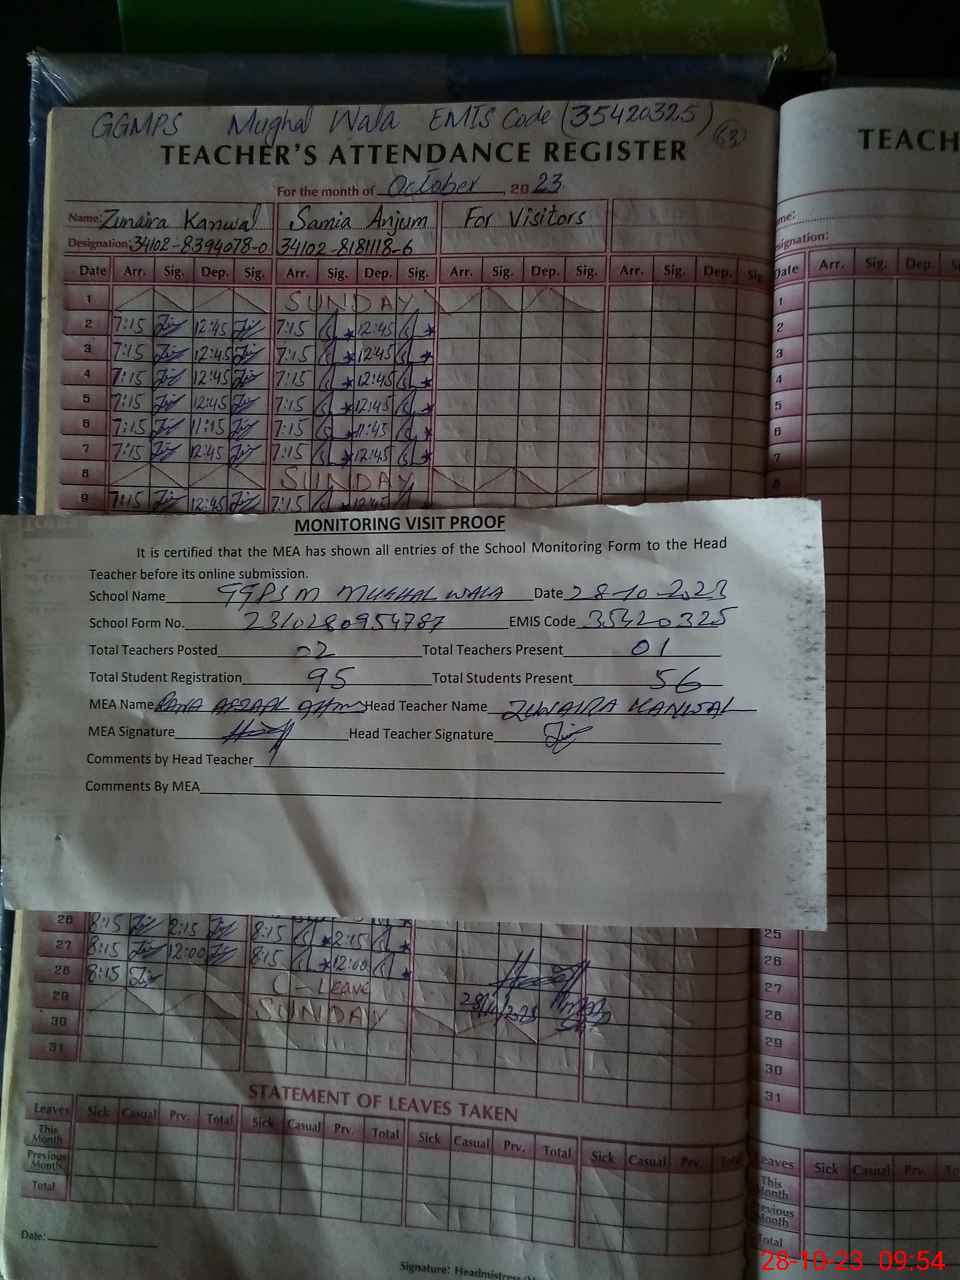 GGMPS Mughal Wala EMIS Code (35420325)
TEACHER'S ATTENDANCE REGISTER
For the month of October, 2023
Name: Zunaira Kanwal Samia Anjum For Visitors
Designation: 34102-8394078-0 34102-818118-6
Date Arr. Sig. Dep. Sig. Arr. Sig. Dep. Sig. Arr. Sig. Dep. Sig. Arr. Sig. Dep. Sig.
1 SUNDAY
2 7:15 12:45 7:15 12:45
3 7:15 12:45 7:15 12:45
4 7:15 12:45 7:15 12:45
5 7:15 12:45 7:15 12:45
6 7:15 11:15 7:15 11:45
7 7:15 12:45 7:15 12:45
8 SUNDAY
9 7:15 12:45 7:15 12:45
MONITORING VISIT PROOF
It is certified that the MEA has shown all entries of the School Monitoring Form to the Head
Teacher before its online submission.
School Name GGPSM MUGHAL WALA Date 28-10-2023
School Form No. 2310280954787 EMIS Code 35420325
Total Teachers Posted 02 Total Teachers Present 01
Total Student Registration 95 Total Students Present 56
MEA Name RANA AFZAAL Head Teacher Name ZUNAIRA KANWAL
MEA Signature Head Teacher Signature
Comments by Head Teacher
Comments By MEA
26 8:15 2:15 8:15 2:15
27 8:15 12:00 8:15 12:00
28 8:15 C-Leave
29 SUNDAY 28/10/2023
30
31
STATEMENT OF LEAVES TAKEN
Leaves Sick Casual Prv. Total Sick Casual Prv. Total Sick Casual Prv. Total Sick Casual Prv. Total
This Month
Previous Month
Total
Date:
Signature: Headmistress
TEACH
Date Arr. Sig. Dep.
1
2
3
4
5
6
7
8
25
26
27
28
29
30
31
Sick Casual Prv.
28-10-23 09:54